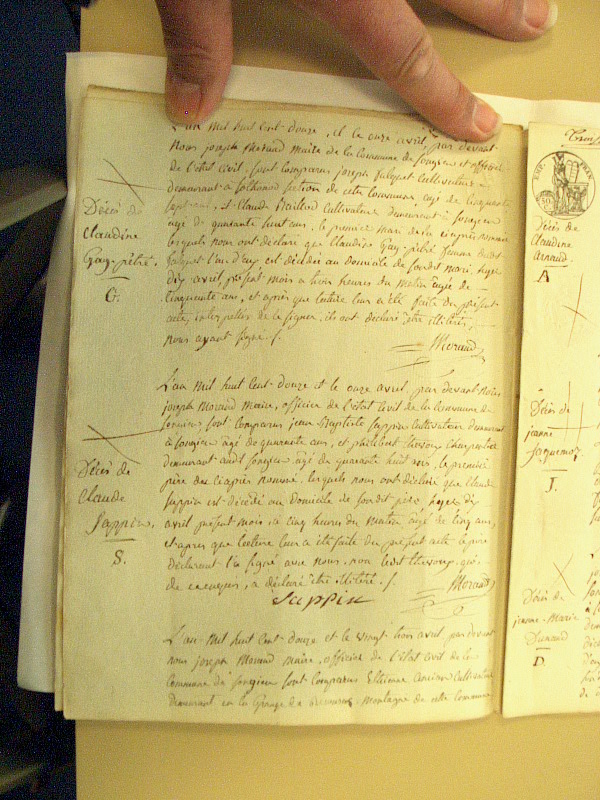 L'an mil huit cent douze, et le onze avril, par devant
Nous joseph Morand Maire de la Commune de songieu et officier
de l'état civil, sont comparus joseph falquet Cultivateur
demeurant à sothonod section de cette Commune, agé de cinquante
sept ans, et Claude Cultivateur demeurant à songieu
agé de quarante huit ans, le premier mari de la ciaprès nommée
lesquels nous ont déclaré que Claudine Gay-pétré femme dudit
falquet est décédée au domicile de sondit mari, hyer
dix avril, présent mois à trois heures du matin agée de
cinquante ans, et après que lecture leur a été faite du présent
acte, interpellés de le signer, ils ont déclaré être illitérés,
nous ayant signé.
Morand
Décès de
Claudine
Gay-pétré.
G.
L'an Mil huit Cent-Douze et le onze avril, par devant Nous
joseph Morand Maire, officier de l'état Civil de la Commune de
songieu, sont Comparus jean Baptiste Sappin Cultivateur demeurant
à songieu agé de quarante ans, et philibert Charpentier
demeurant audit songieu agé de quarante huit ans, le premier
père du ciaprès nommé, lesquels nous ont déclaré que Claude
Sappin est décédé au Domicile de sondit père, hyer dix
avril présent mois à cinq heures du Matin agé de cinq ans,
et après que lecture leur a été faite du présent acte le père
déclarant l'a signé avec nous, non ledit qui
de ce enquis, a déclaré être illitéré.
Morand
Sappin
Décès de
Claude
Sappin.
S.
L'an mil huit cent douze et le vingt trois avril par devant
nous joseph Morand maire, officier de l'état civil de la
Commune de songieu sont Comparus Etienne Cultivateur
demeurant en la Grange de Montagne de cette Commune
Décès de
Claudine
Arnaud.
A
Décès de
jeanne
J.
Décès de
jeanne-Marie
Durand
D.